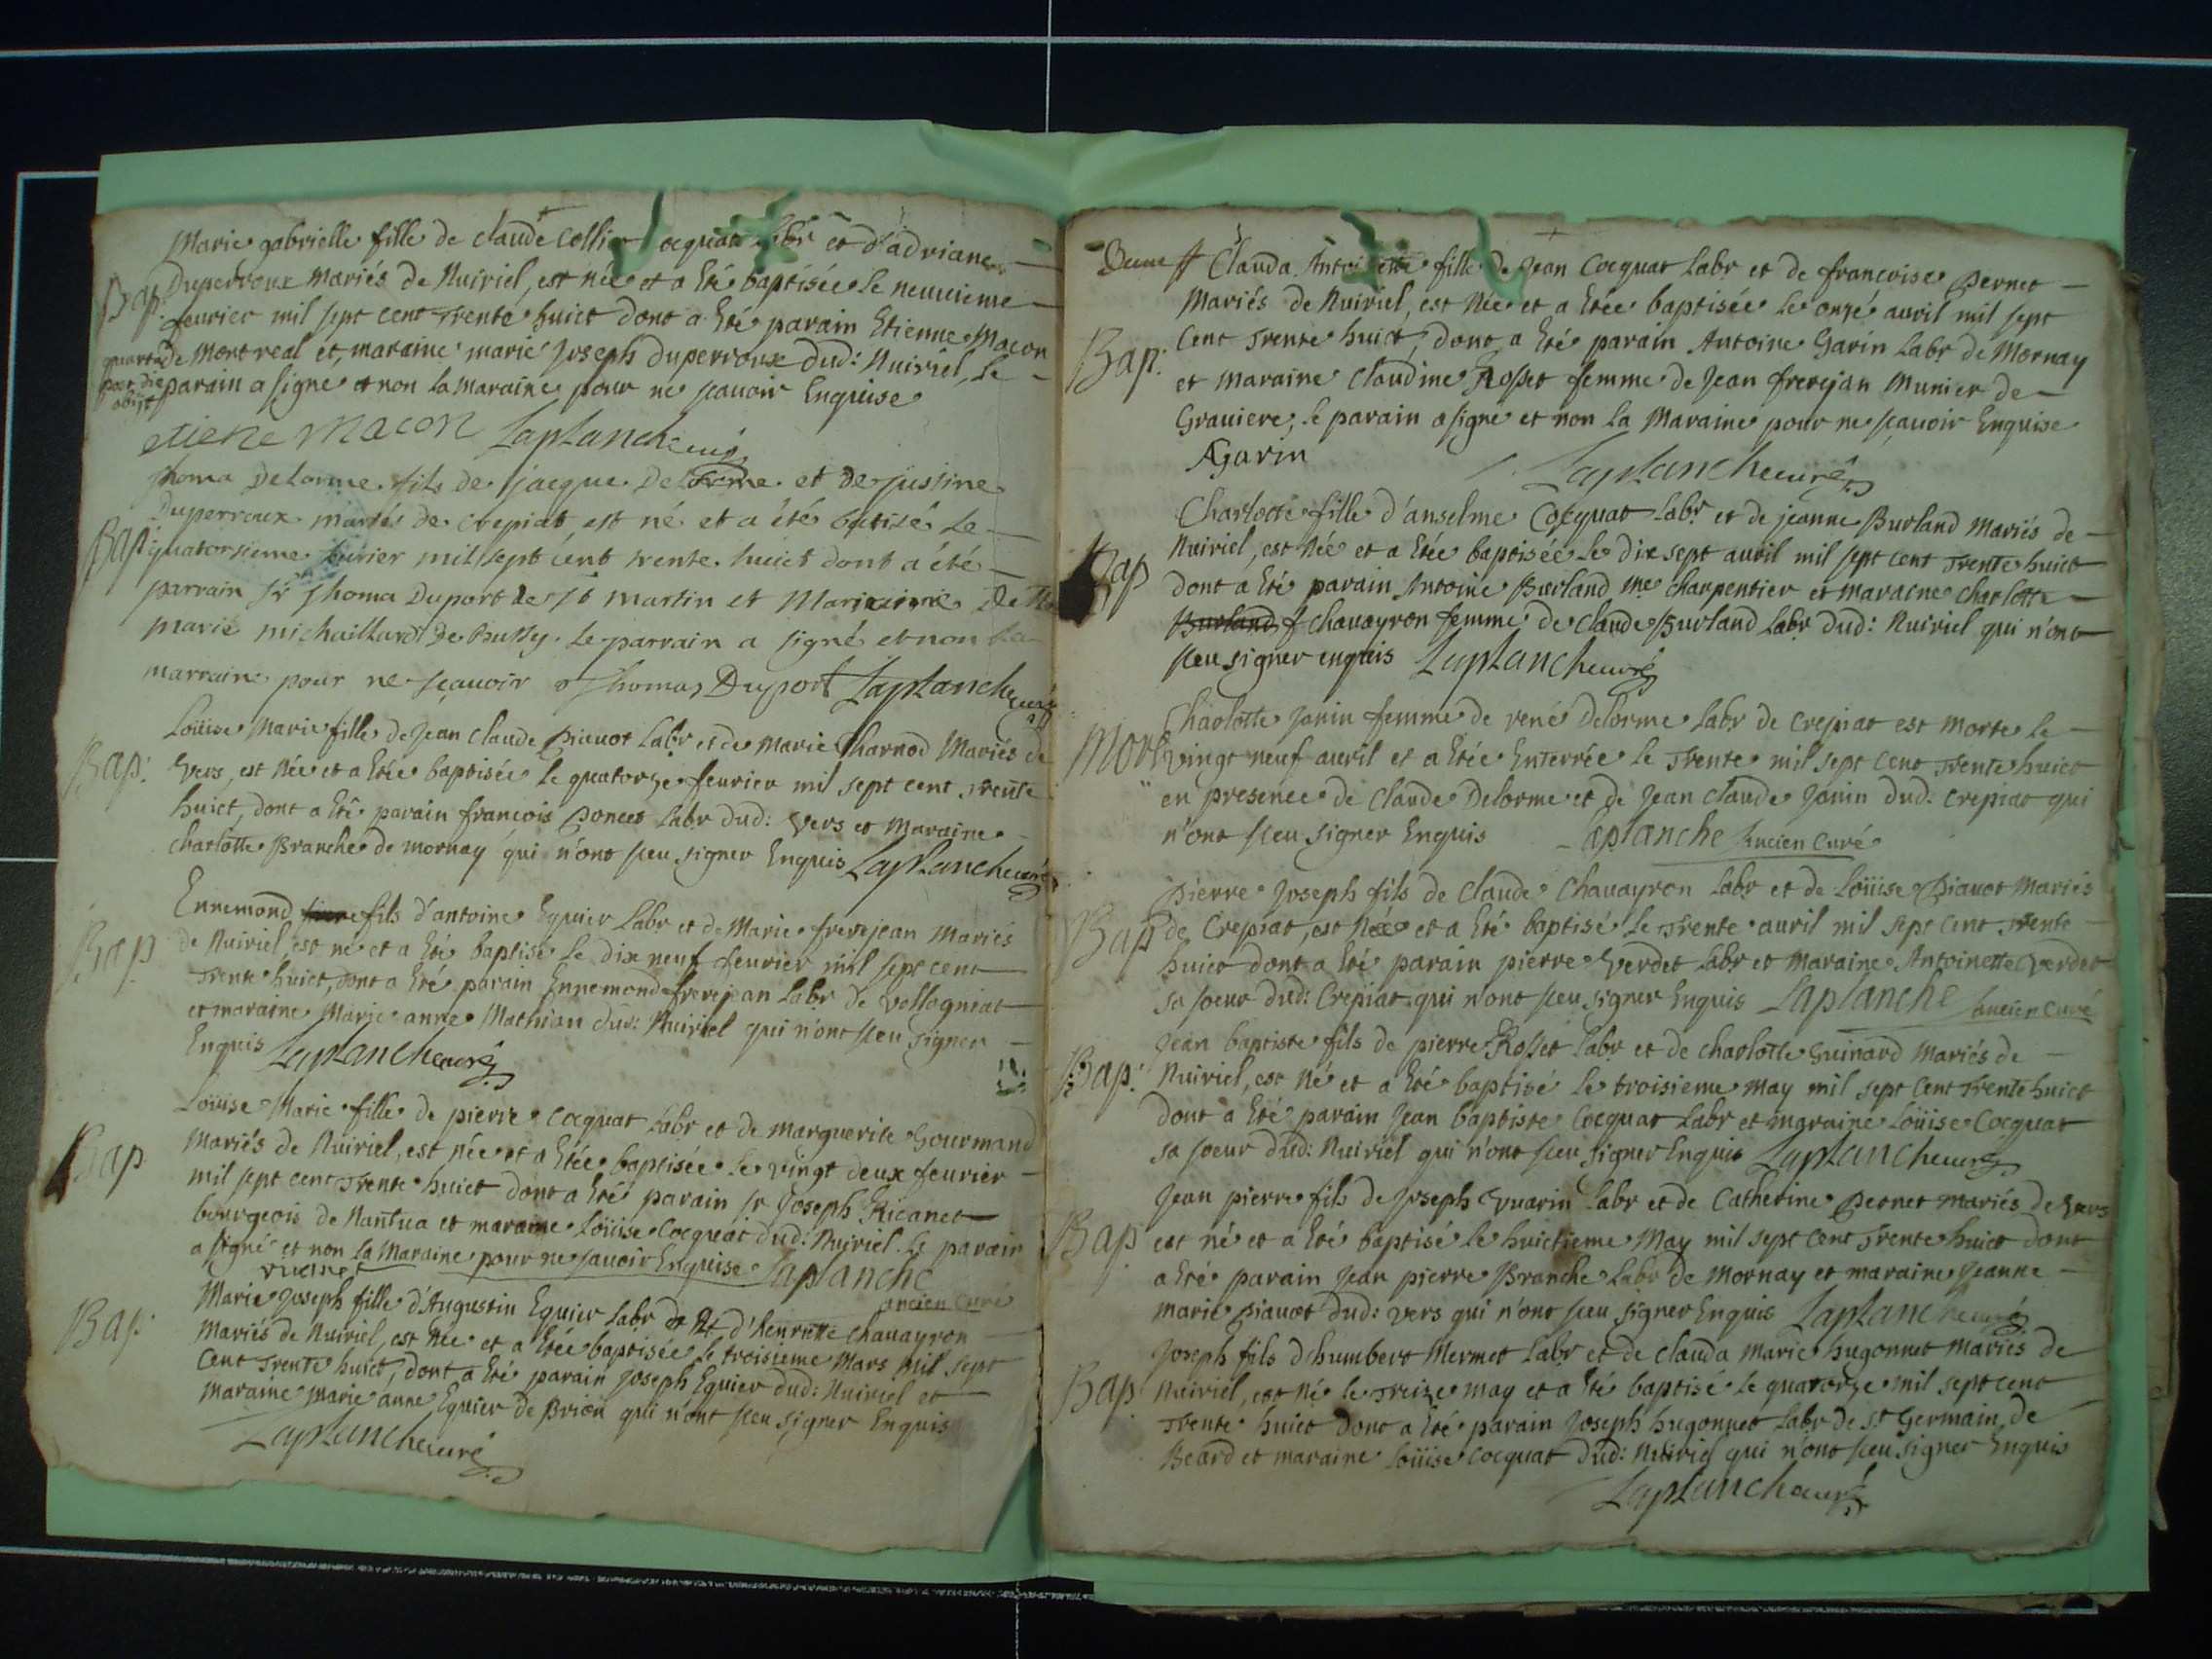 Marie gabrielle fille de claude collier cocquat labr et d'adriane
Bap: Duperroux mariés de Nuiriel, est née et a Eté baptisée le neuuieme
feurier mil sept cent Trente huict dont a Eté parain Etienne Macon
quarta de Montreal et, maraine marie Joseph duperroux dud: Nuiriel, le
post die parain a signe et non la maraine pour ne scauoir Enquise
obiit
etiene macon Laplanche curé
Thoma Delorme fils de jacque Delorme et de justine
Duperroux mariés de crepiat est né et a été batisé le
Bap: quatorsieme feurier mil sept cent trente huict dont a été
parrain sr Thoma Duport de st martin et Marie
marie michaillard De Bussy. Le parrain a signé et non la
marraine pour ne sçauoir Thomas Duport Laplanche curé
Loüise Marie fille de Jean claude Piauot Labr et de Marie Charnod Mariés de
Bap: Vers, est Née et a Etée baptisée le quatorze feurier mil sept cent trente
huict, dont a Eté parain francois Poncet Labr dud: Vers et Maraine
charlotte Branche de mornay qui n'ont sceu signer Enquis Laplanche curé
Ennemond fils d'antoine Eguier Labr et de Marie frerejean Mariés
Bap de Nuiriel, est né et a Eté baptisé le dix neuf feurier mil sept cent
Trente huict, dont a Eté parain Ennemond frerejean Labr de Vollogniat
et maraine Marie anne Mathian dud: Nuiriel qui n'ont sceu signer
Enquis Laplanche curé
Loüise Marie fille de pierre cocquat Labr et de marguerite Gourmand
Bap Mariés de Nuiriel, est née et a Etée baptisée le vingt deux feurier
mil sept cent Trente huict dont a Eté parain sr Joseph Ricanet
bourgeois de Nantua et maraine Loüise Cocquat dud: Nuiriel. Le parain
a signé et non La Maraine pour ne scauoir Enquise Laplanche
ancien curé
Marie Joseph fille d'Augustin Eguier Labr et d'henriette chauayron
Bap: Mariés de Nuiriel, est Née et a Etée baptisée le troisieme Mars mil sept
Cent Trente huict, dont a Eté parain Joseph Eguier dud: Nuiriel et
maraine marie anne Eguier de Brion qui n'ont sceu signer Enquis
Laplanche curé
Clauda Antoinette fille de Jean Cocquat Labr et de francoise Pernet
Mariés de Nuiriel, est Née et a Etée baptisée le onzé auril mil sept
Bap: Cent Trente huict, dont a Eté parain Antoine Garin Labr de Mornay
et maraine claudine Rosset femme de Jean frerejan Munier de
Grauiere, le parain a signe et non la Maraine pour ne sçauoir Enquise
AGarin Laplanche curé
Charlotte fille d'anselme Cocquat Labr et de jeanne Burland Mariés de
Bap Nuiriel, est Née et a Etée baptisée le dix sept auril mil sept cent Trente huict
dont a Eté parain Antoine Burland me charpentier et maraine charlotte
Burland chauayron femme de claude Burland Labr dud: Nuiriel qui n'ont
sceu signer enquis Laplanche curé
Charlotte Janin femme de rené Delorme Labr de crepiat est Morte le
Mort vingt neuf auril et a Etée Enterrée le Trente mil sept cent Trente huict
en presence de Claude Delorme et de Jean claude Janin dud: Crepiat qui
n'ont sceu signer Enquis Laplanche ancien curé
Pierre Joseph fils de Claude Chauayron Labr et de Loüise Piauot Mariés
Bap de Crepiat, est Né et a Eté baptisé le Trente auril mil sept cent Trente
huict dont a Eté parain pierre Verdet Labr et Maraine Antoinette Verdet
sa soeur dud: Crepiat qui n'ont sceu signer Enquis Laplanche ancien curé
Jean baptiste fils de pierre Rosset Labr et de charlotte Guinard Mariés de
Bap: Nuiriel, est Né et a Eté baptisé le troisieme may mil sept cent Trente huict
dont a Eté parain Jean baptiste Cocquat Labr et maraine Loüise Cocquat
sa soeur dud: Nuiriel qui n'ont sceu signer Enquis Laplanche curé
Jean pierre fils de Joseph Guarin Labr et de Catherine Pernet Mariés de Vers
Bap est né et a Eté baptisé le huictieme May mil sept cent Trente huict dont
a Eté parain Jean pierre Branche Labr de Mornay et maraine Jeanne
marie piauot dud: vers qui n'ont sceu signer Enquis Laplanche curé
Joseph fils d'humbert Mermet Labr et de clauda Marie hugonnet Mariés de
Bap Nuiriel, est Né le Treize may et a Eté baptisé le quatorze mil sept cent
Trente huict dont a Eté parain Joseph hugonnet Labr de st Germain de
Beard et maraine Loüise cocquat dud: Nuiriel qui n'ont sceu signer Enquis
Laplanche curé